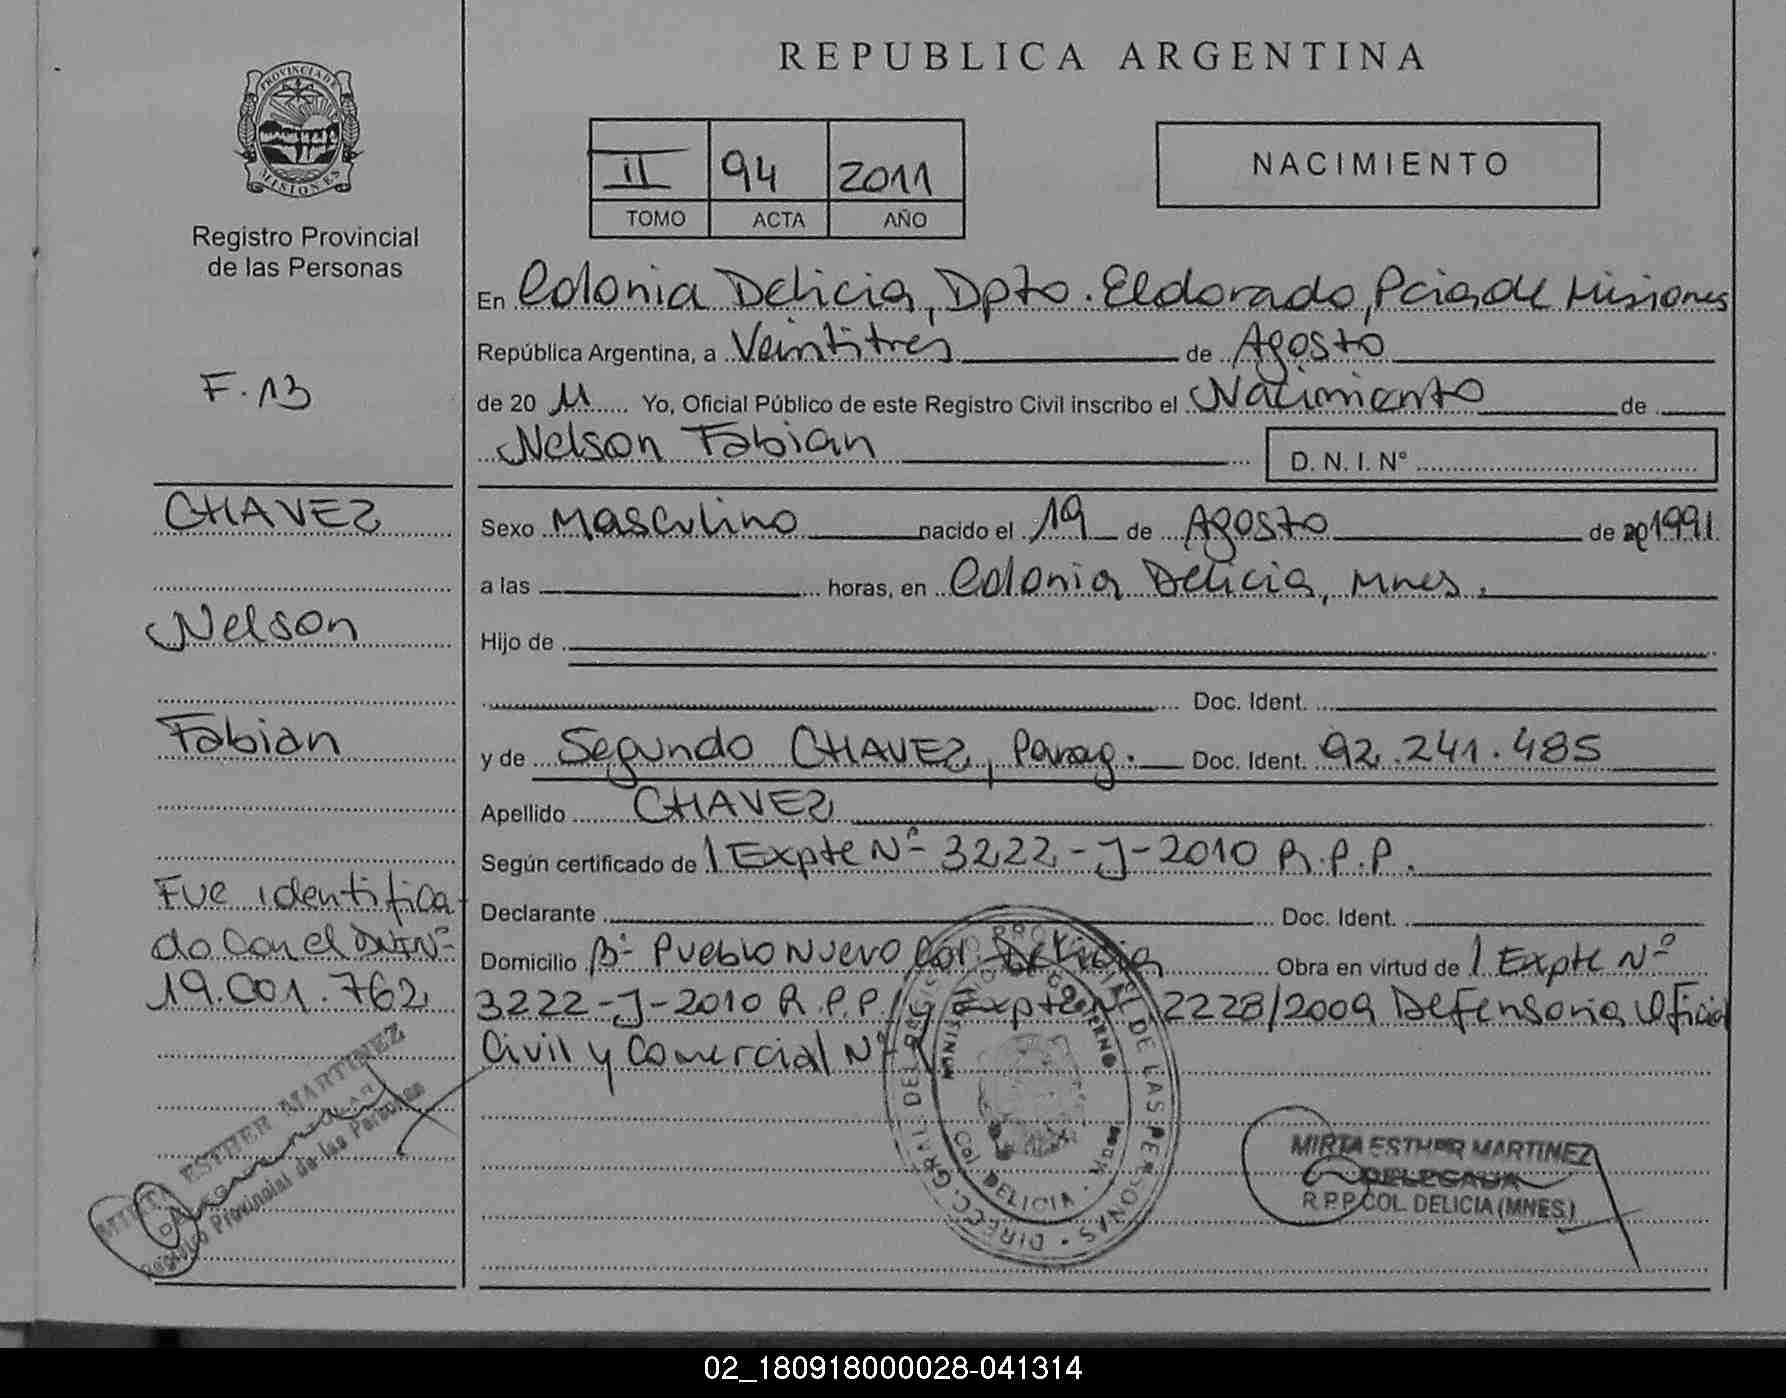 REPUBLICA ARGENTINA
PROVINCIA DE
MISIONES
Registro Provincial
de las Personas
II 94 2011
TOMO ACTA AÑO
NACIMIENTO
En Colonia Delicia, Dpto. Eldorado, Pcia de Misiones
República Argentina, a Veintitres de Agosto
F. 13
de 20 11 Yo, Oficial Público de este Registro Civil inscribo el Nacimiento de
Nelson Fabian
D. N. I. N°
CHAVEZ
Sexo Masculino nacido el 19 de Agosto de 1991.
a las horas, en Colonia Delicia, Mnes.
Nelson
Hijo de
Doc. Ident.
Fabian
y de Segundo CHAVEZ, Parag. Doc. Ident. 92.241.485
Apellido CHAVEZ
Según certificado de / Expte Nº 3222-J-2010 R.P.P.
Fue identifica
do con el DNI Nº
19.001.762
Declarante Doc. Ident.
Domicilio Bº Pueblo Nuevo Col. Delicia Obra en virtud de / Expte Nº
3222-J-2010 R.P.P. y Expte Nº 2228/2009 Defensoria Oficial
Civil y Comercial Nº
MIRTA ESTHER MARTINEZ
Registro Provincial de las Personas
DIRECC. GRAL. DEL REGISTRO PROVINCIAL DE LAS PERSONAS
MINISTERIO DE GOBIERNO
Col. DELICIA
MIRTA ESTHER MARTINEZ
DELEGADA
R.P.P. COL. DELICIA (MNES)
02_180918000028-041314